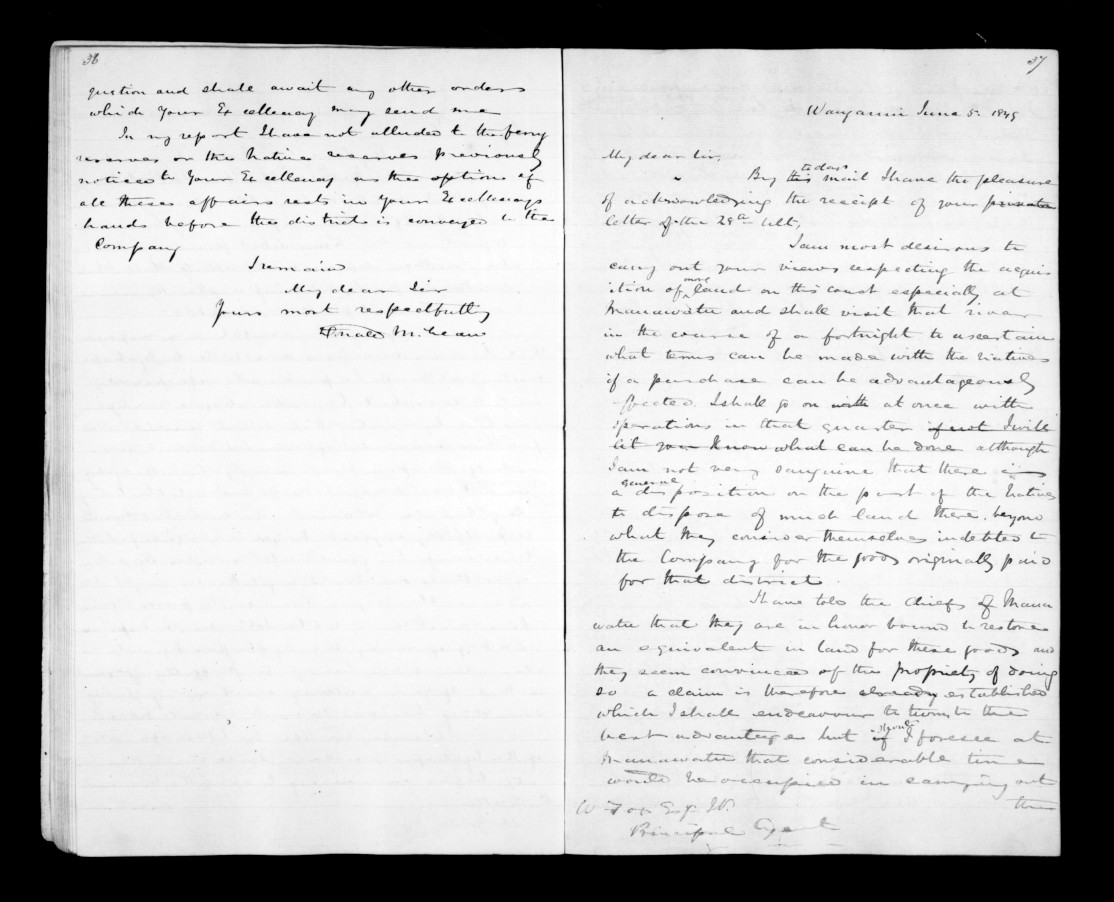 36
question and shall await any other orders
which Your Excellency may send me
In my report I have not alluded to the ferry
reserves or the Native reserves previously
noticed to Your Excellency as the option of
all these affairs rests in Your Excellencys
hands before the districts is conveyed to the
Company
I remain
My dear Sir
Yours most respectfully
Donald McLean
37
Wanganui June 5. 1849
My dear Sir
By this todays mail I have the pleasure
of acknowledging the receipt of your private
letter of the 28th Ult,
I am most desirous to
carry out your views respecting the acquis
ition of more land on this coast especially at
Manawatu and shall visit that river
in the course of a fortnight to ascertain
what terms can be made with the Natives
if a purchase can be advantageously
effected. I shall go on with at once with
operations in that quarter if not I will
let you know what can be done although
I am not very sanguine that there is
a general disposition on the part of the Natives
to dispose of much land there, beyond
what they consider themselves indebted to
the Company for the goods originally paid
for that district.
I have told the chiefs of Mana
watu that they are in honor bound to restore
an equivalent in land for these goods and
they seem convinced of the propriety of doing
so a claim is therefore already established
which I shall endeavour to turn to the
best advantage but if should I foresee at
Manawatu that considerable time
would be occupied in carrying out
W Fox Esq JP.
Principal Agent